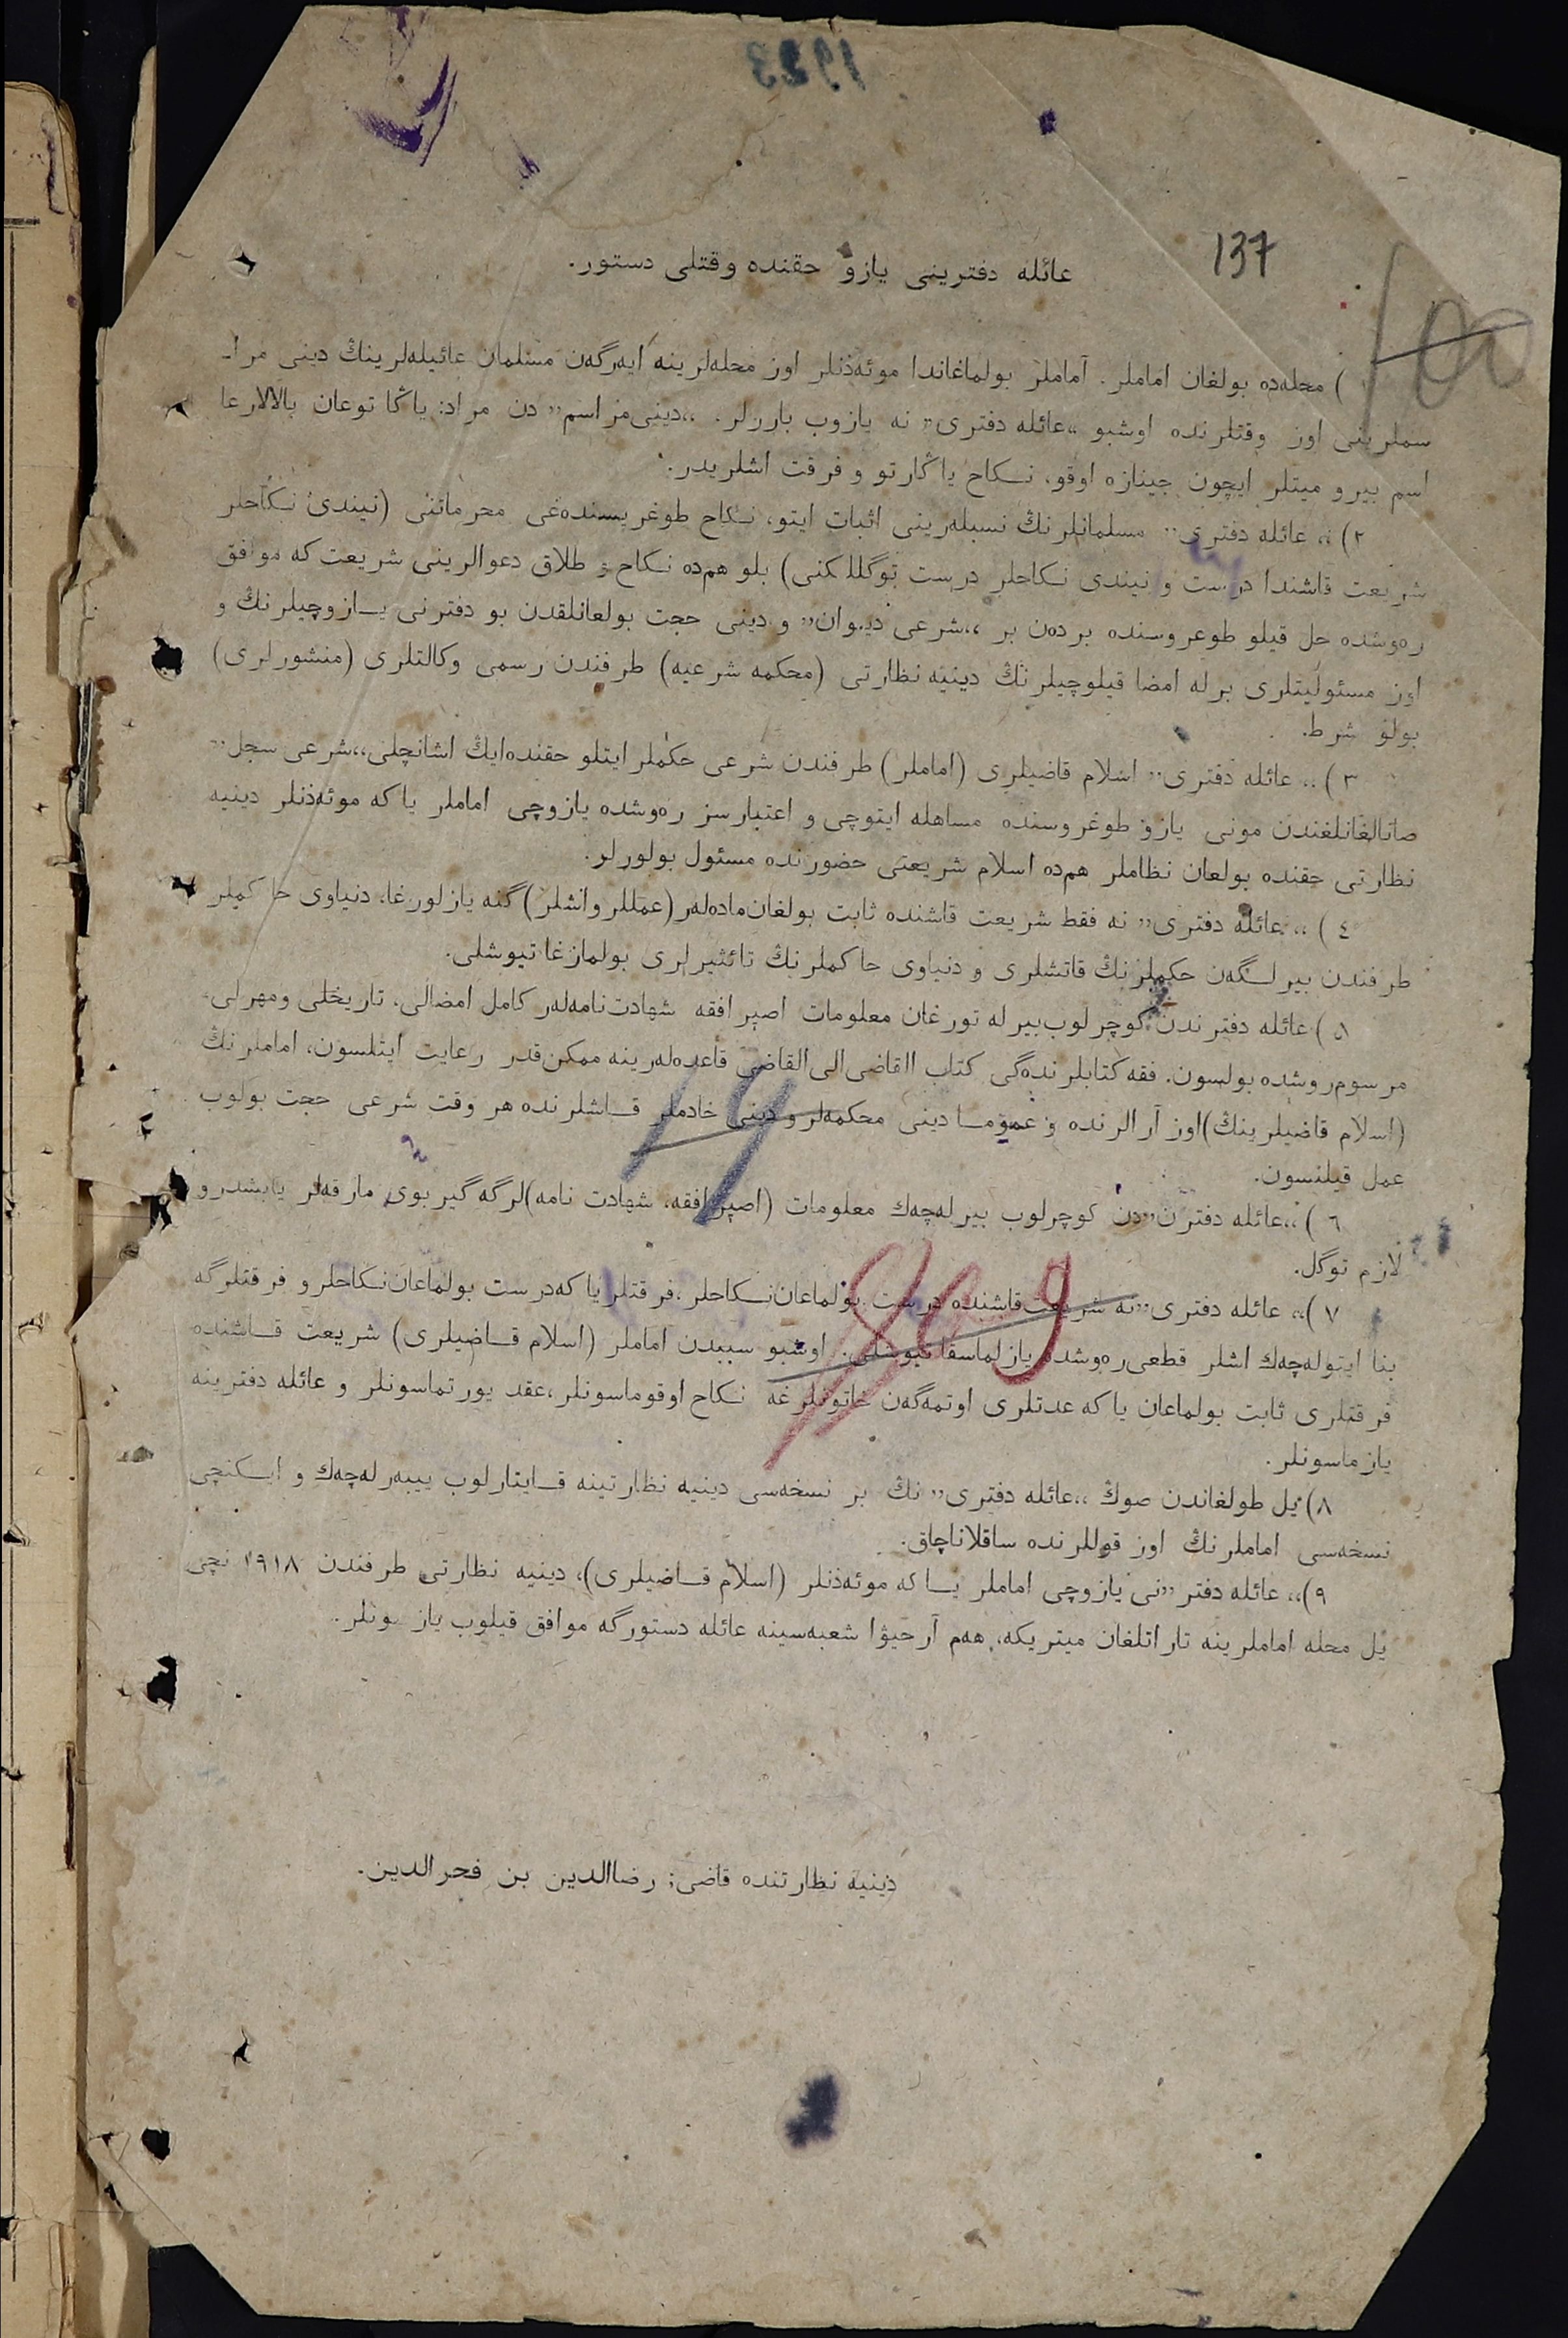 1923
137
100
عائله دفترينی يازو حقنده وقتلی دستور.
۱) محله‌ده بولغان اماملر. آماملر بولماغاندا موئه‌ذنلر اوز محله‌لرينه ايه‌رگه‌ن مسلمان عائيله‌لرينڭ دينی مرا۔
سملرينی اوز وقتلرنده اوشبو „عائله دفتری” نه يازوب باررلر. „دينی‌مراسم” دن مراد: ياڭا توعان بالالارعا
اسم بيرو ميتلر ايچون جينازه اوقو، نـكاح ياڭارتو و فرقت اشلريدر.
۲) „ عائله دفتری” مسلمانلرنڭ نسبله‌رينی اثبات ايتو، نـكاح طوغريسنده‌غی محرماتنی (نيندی نـكاحلر
شريعت قاشندا درست و نيندی نـكاحلر درست توگللكنی) بلو هم‌ده نـكاح و طلاق دعوالرينی شريعت‌كه موافق
ره‌وشده حل قيلو طوعروسنده برده‌ن بر „شرعی ديوان” و دينی حجت بولعانلقدن بو دفترنی يـازوچيلرنڭ و
اوز مسئوليتلری برله امضا قيلوچيلرنڭ دينيه نظارتی (محكمه شرعيه) طرفندن رسمی وكالتلری (منشورلری)
بولو شرط.
۳) „ عائله دفتری” اسلام قاضيلری (اماملر) طرفندن شرعی حكملر ايتلو حقنده‌ايڭ اشانچلی„شرعی سجل”
صانالغانلغندن مونی يازو طوغروسنده مساهله ايتوچی و اعتبارسز ره‌وشده يازوچی اماملر ياكه موئه‌ذنلر دينيه
نظارتی حقنده بولعان نظاملر هم‌ده اسلام شريعتی حضورنده مسئول بولورلر.
٤) „ عائله دفتری” نه فقط شريعت قاشنده ثابت بولغان‌ماده‌له‌ر(عمللرواشلر)گنه يازلورغا، دنياوی حاكملر
طرفندن بيرلـگه‌ن حكملرنڭ قاتشلری و دنياوی حاكملرنڭ تائثيرلری بولمازغا تيوشلی.
۵) عائله دفترندن كوچرلوب‌بيرله تورغان معلومات اصپرافقه شهادت‌نامه‌له‌ر كامل امضالی، تاريخلی ومهرلی
مرسوم‌روشده بولسون. فقه كتابلرنده‌گی كتاب االقاضی‌الی‌القاضی قاعده‌له‌رينه ممكن‌قدر رعايت ايتلسون، اماملرنڭ
(اسلام قاضيلرينڭ)اوز آرالرنده و عمومـا دينی محكمه‌لرو دينی خادملر قـاشلرنده هر وقت شرعی حجت بولوب
عمل قيلنسون.
٦) „عائله دفترن”دن كوچرلوب بيرله‌چه‌ك معلومات (اصپرافقه، شهادت نامه)لرگه گيربوی مارقه‌لر يابشدرو
لازم توگل.
۷) „ عائله دفتری”نه شريعت‌قاشنده درست بولماعان‌نـكاحلر،فرقتلر ياكه‌درست بولماعان‌نـكاحلرو فرقتلرگه
بنا ايتوله‌چه‌ك اشلر قطعی‌ره‌وشده يازلماسقا تيوشلی. اوشبو سببدن اماملر (اسلام قـاضيلری) شريعت قـاشنده
فرقتلری ثابت بولماعان ياكه عدتلری اوتمه‌گه‌ن خاتونلرغه نـكاح اوقوماسونلر،عقد يورتماسونلر و عائله دفترينه
يازماسونلر.
۸) يل طولغاندن صوڭ „عائله دفتری” نڭ بر نسخه‌سی دينيه نظارتينه قـايتارلوب ييبه‌رله‌چه‌ك و ايـكنچی
نسخه‌سی اماملرنڭ اوز قوللرنده ساقلاناچاق.
۹) „ عائله دفتر”نی يازوچی اماملر يـاكه موئه‌ذنلر (اسلام قـاضيلری)، دينيه نظارتی طرفندن ۱۹۱۸ نچی
يل محله اماملرينه تاراتلغان ميتريكه، هه‌م آرحيوا شعبه‌سينه عائله دستورگه موافق قيلوب يازسونلر.
دينيه نظارتنده قاضی: رضاالدين بن فخرالدين.